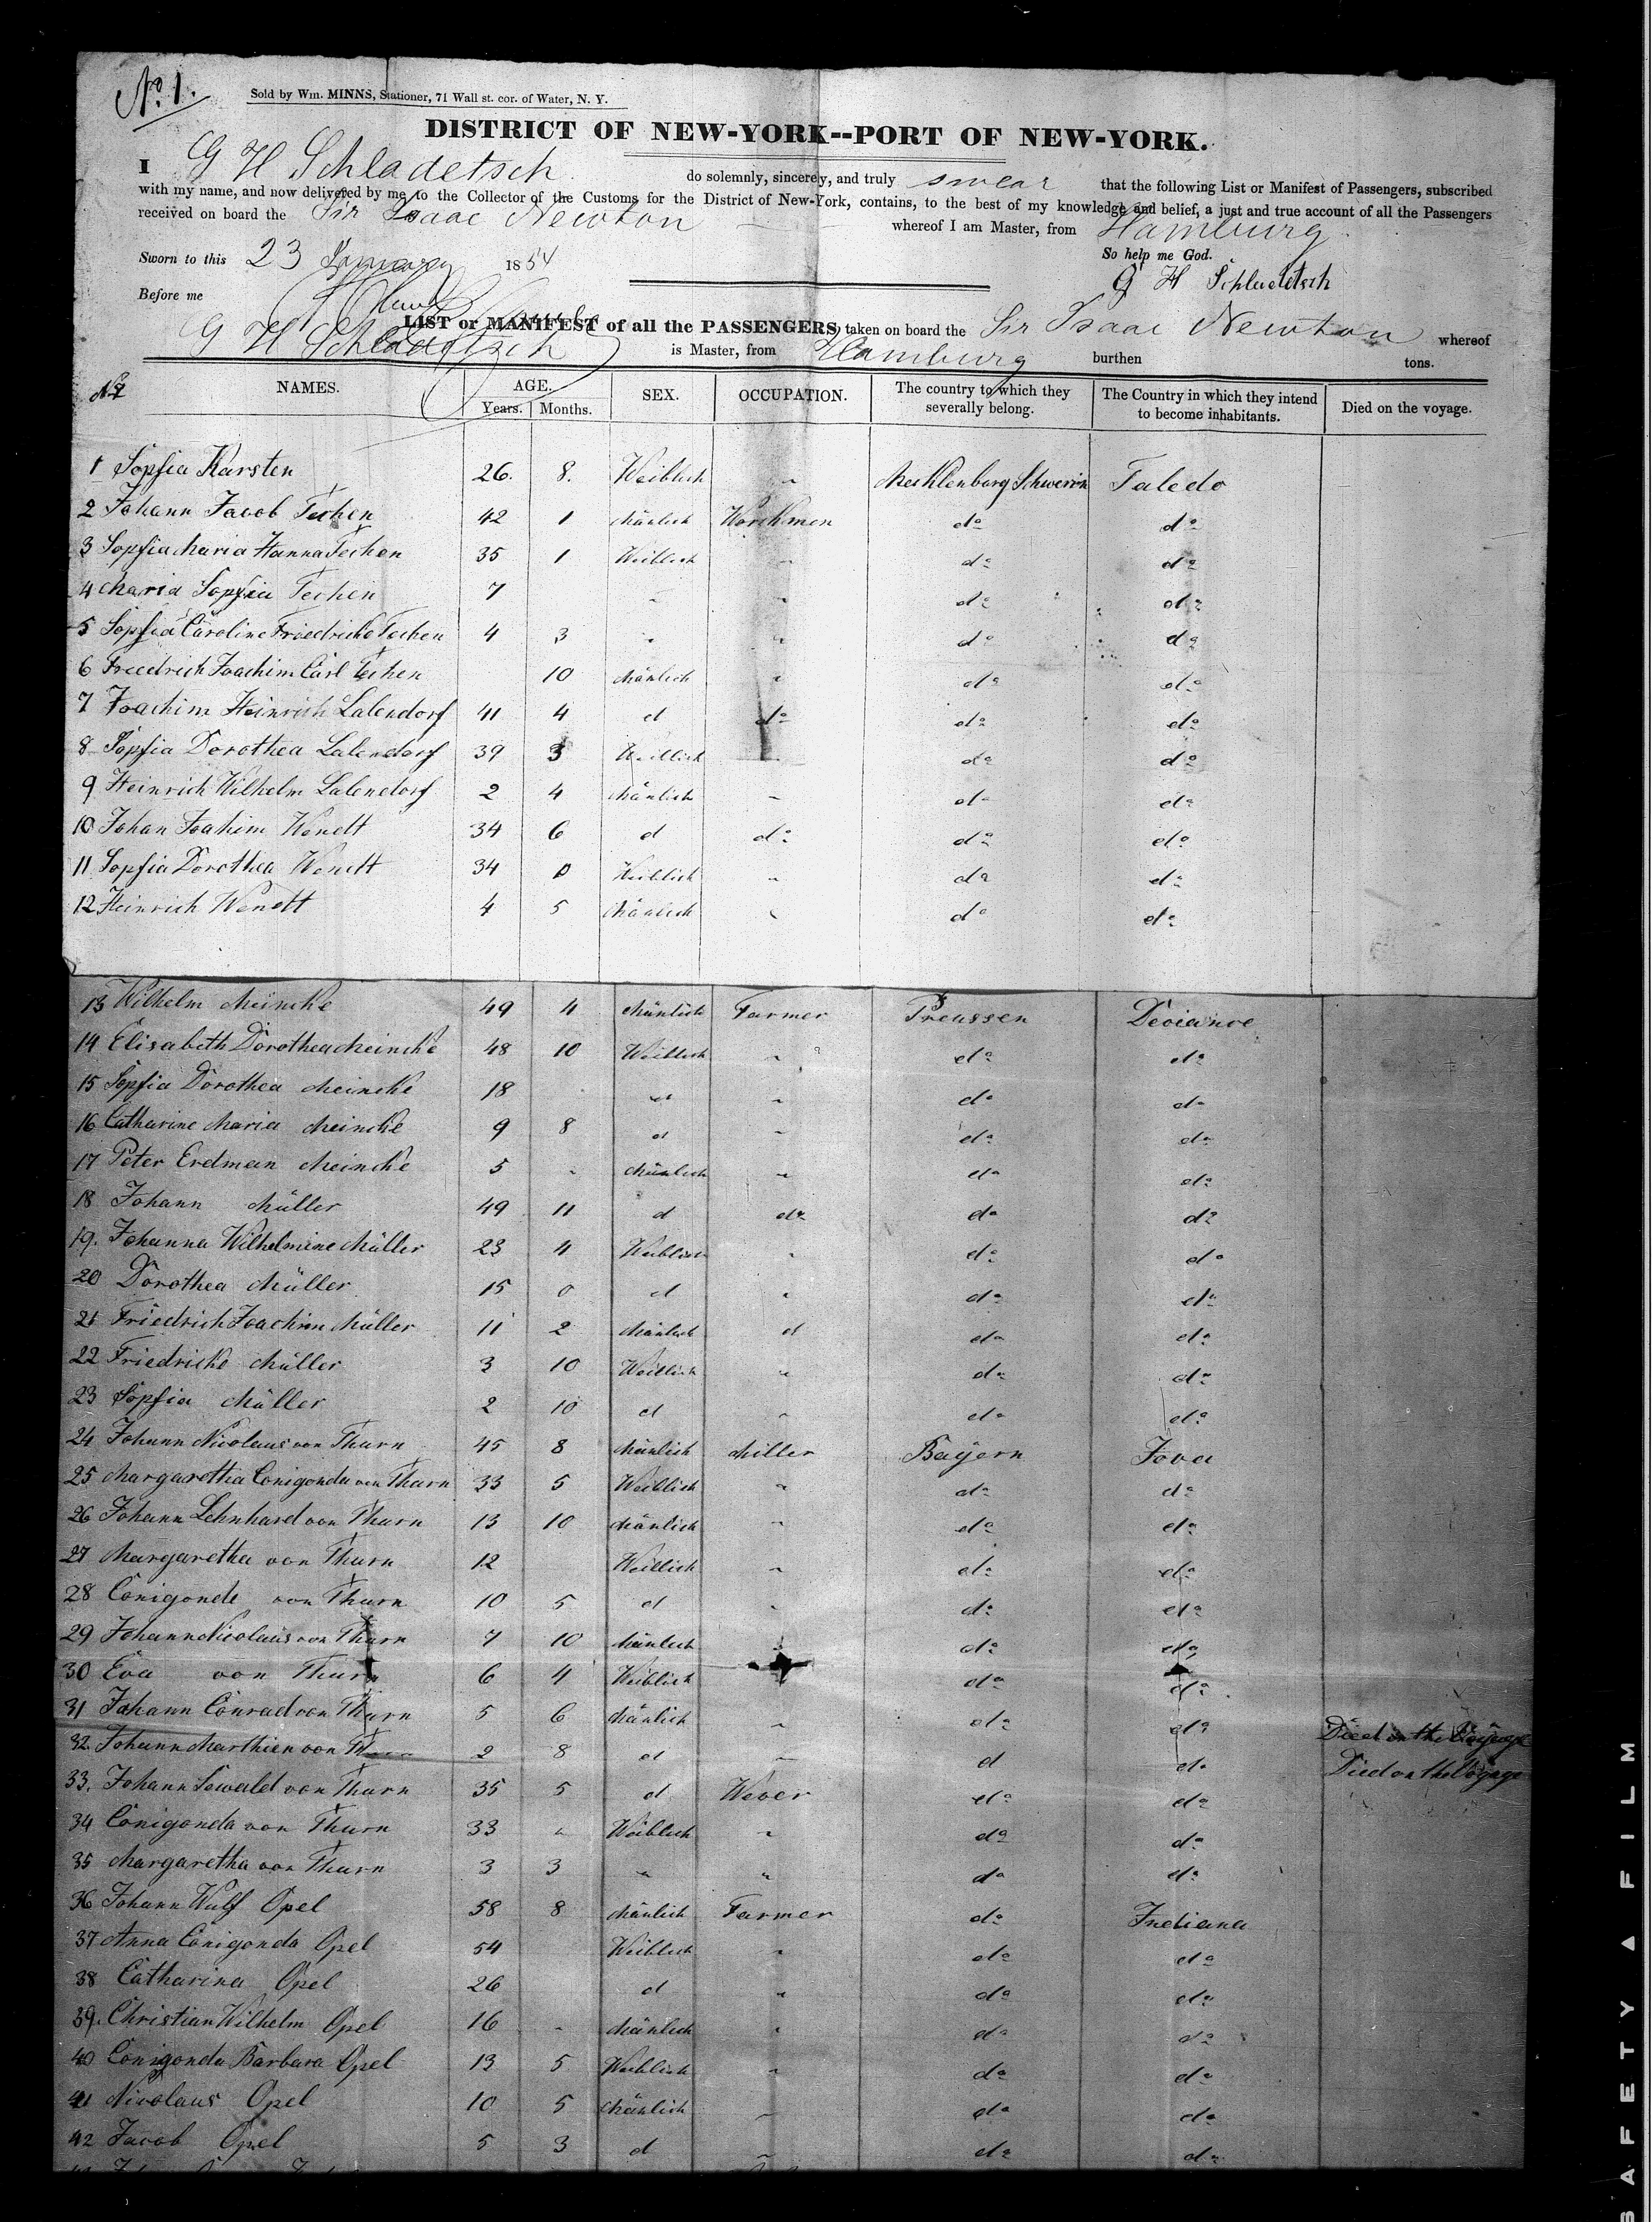 No. 1.
Sold by Wm. MINNS, Stationer, 71 Wall st. cor. of Water, N. Y.
DISTRICT OF NEW-YORK--PORT OF NEW-YORK.
I G H Schladetsch do solemnly, sincerely, and truly swear that the following List or Manifest of Passengers, subscribed
with my name, and now delivered by me to the Collector of the Customs for the District of New-York, contains, to the best of my knowledge and belief, a just and true account of all the Passengers
received on board the Sir Isaac Newton whereof I am Master, from Hamburg
Sworn to this 23 January 1854 So help me God.
G H Schladetsch
Before me
LIST or MANIFEST of all the PASSENGERS taken on board the Sir Isaac Newton whereof
G H Schladetsch is Master, from Hamburg burthen tons.
NAMES. AGE. SEX. OCCUPATION. The country to which they severally belong. The Country in which they intend to become inhabitants. Died on the voyage.
Years. Months.
1 Sopfia Karsten 26. 8. Weiblich " Mecklenburg Schwerin Toledo
2 Johann Jacob Techen 42 1 Mänlich Workmen do do
3 Sopfia Maria Hanna Techen 35 1 Weiblich " do do
4 Maria Sopfia Techen 7 " " do do
5 Sopfia Caroline Friedricke Techen 4 3 " " do do
6 Friedrich Joachim Carl Techen 10 Mänlich " do do
7 Joachim Heinrich Lalendorf 41 4 d do do do
8 Sopfia Dorothea Lalendorf 39 3 Weiblich do do
9 Heinrich Wilhelm Lalendorf 2 4 Mänlich " do do
10 Johan Joahim Wendt 34 6 d do do do
11 Sopfia Dorothea Wendt 34 0 Weiblich " do do
12 Heinrich Wendt 4 5 Mänlich " do do
13 Wilhelm Meincke 49 4 Mänlich Farmer Preussen Deviance
14 Elisabeth Dorothea Meincke 48 10 Weiblich " do do
15 Sopfia Dorothea Meincke 18 d " do do
16 Catharine Maria Meincke 9 8 d " do do
17 Peter Erdman Meincke 5 " Mänlich " do do
18 Johann Müller 49 11 d do do do
19. Johanna Wilhelmine Müller 23 4 Weiblich " do do
20 Dorothea Müller 15 0 d " do do
21 Friedrich Joachim Müller 11 2 Mänlich d do do
22 Friedricke Müller 3 10 Weiblich " do do
23 Sopfia Müller 2 10 d " do do
24 Johann Nicolaus von Thurn 45 8 Mänlich Miller Bayern Jova
25 Margaretha Conigonda von Thurn 33 5 Weiblich " do do
26 Johann Lehnhard von Thurn 13 10 Mänlich " do do
27 Margaretha von Thurn 12 Weiblich " do do
28 Conigonde von Thurn 10 5 d " do do
29 Johann Nicolaus von Thurn 7 10 Mänlich do do
30 Eva von Thurn 6 4 Weiblich do do
31 Johann Conrad von Thurn 5 6 Mänlich " do do Died on the Voyage
32. Johann Marthien von Thurn 2 8 d " d do Died on the Voyage
33. Johann Sewald von Thurn 35 5 d Wever do do
34 Conigonda von Thurn 33 " Weiblich " do do
35 Margaretha von Thurn 3 3 " " do do
36 Johann Wulf Opel 58 8 Mänlich Farmer do Indiana
37 Anna Conigonda Opel 54 Weiblich " do do
38 Catharina Opel 26 d " do do
39. Christian Wilhelm Opel 16 - Mänlich " do do
40 Conigonda Barbara Opel 13 5 Weiblich " do do
41 Nicolaus Opel 10 5 Mänlich " do do
42 Jacob Opel 5 3 d " do do
SAFETY ▲ FILM